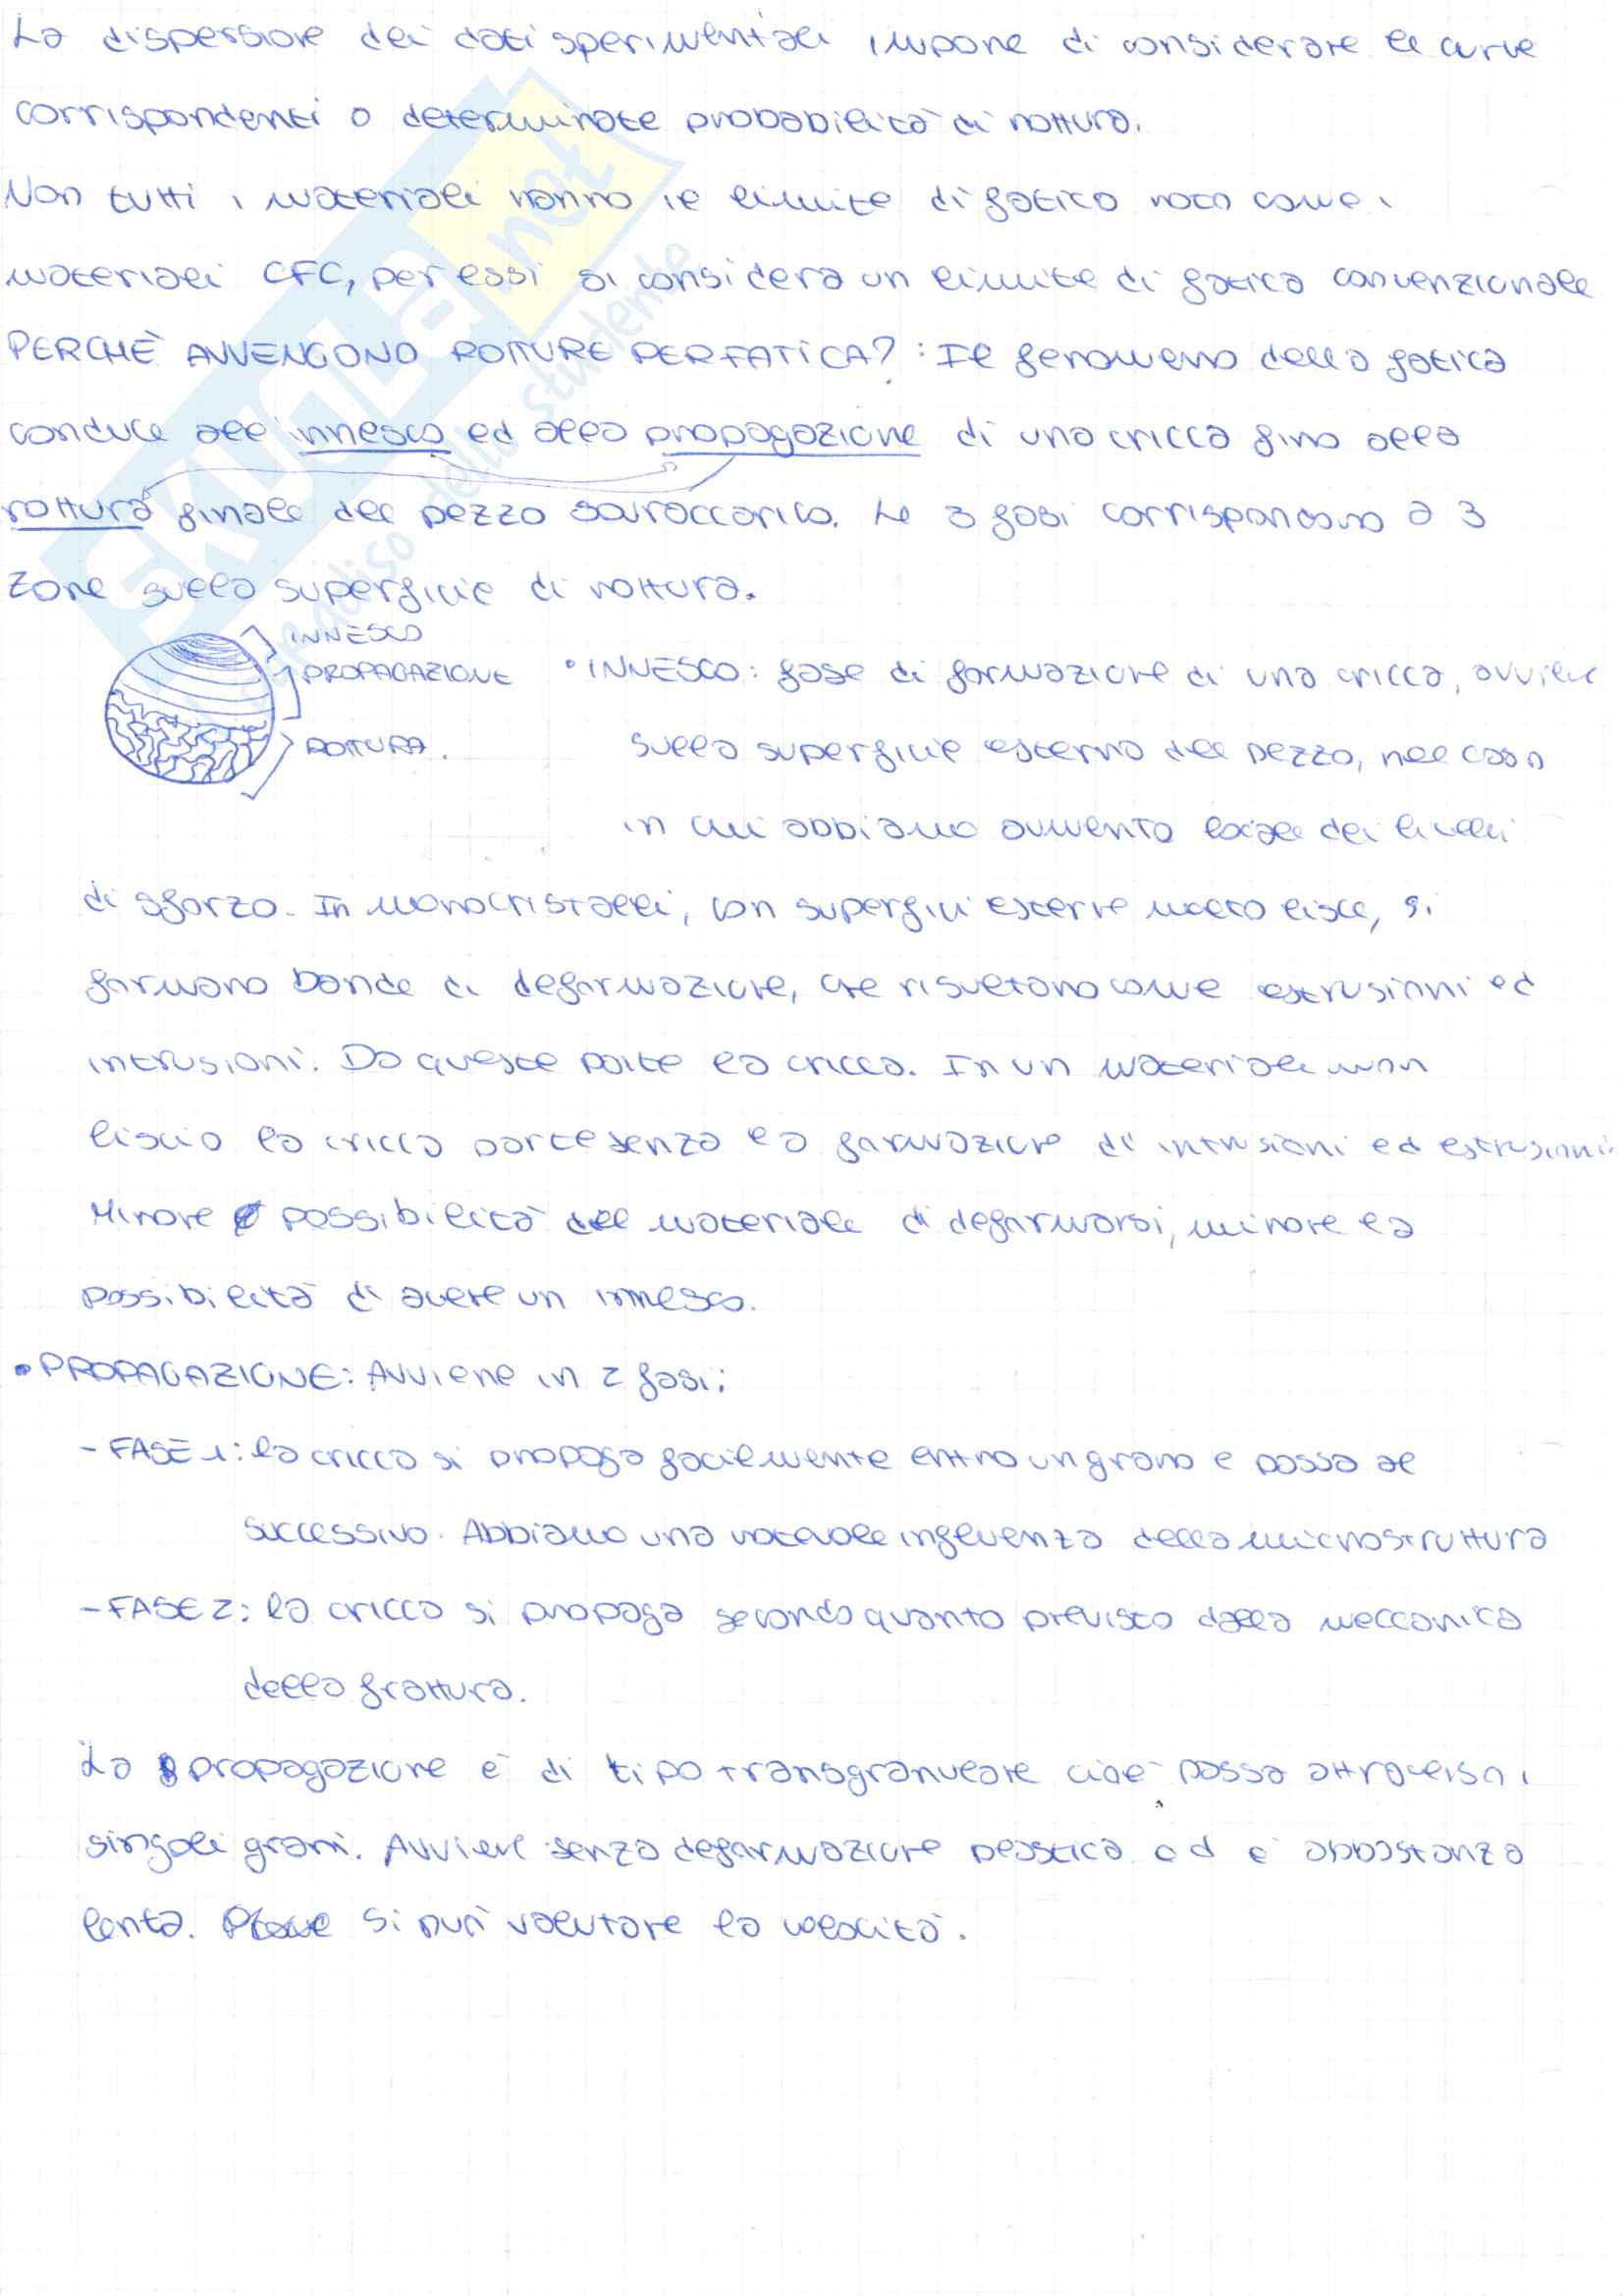 La dispersione dei dati sperimentali impone di considerare le curve
corrispondenti a determinate probabilità di rottura.
Non tutti i materiali hanno il limite di fatica noto come i
materiali CFC, per essi si considera un limite di fatica convenzionale
PERCHÈ AVVENGONO ROTTURE PER FATICA? : Il fenomeno della fatica
conduce all'innesco ed alla propagazione di una cricca fino alla
rottura finale del pezzo sovraccarico. Le 3 fasi corrispondono a 3
zone sulla superficie di rottura.
INNESCO
PROPAGAZIONE
ROTTURA.
• INNESCO: fase di formazione di una cricca, avviene
sulla superficie esterna del pezzo, nel caso
in cui abbiamo aumento locale dei livelli
di sforzo. In monocristalli, con superfici esterne molto lisce, si
formano bande di deformazione, che risultano come estrusioni ed
intrusioni. Da queste parte la cricca. In un materiale non
liscio la cricca parte senza la formazione di intrusioni ed estrusioni.
Minore possibilità del materiale di deformarsi, minore la
possibilità di avere un innesco.
• PROPAGAZIONE: Avviene in 2 fasi:
- FASE 1: la cricca si propaga facilmente entro un grano e passa al
successivo. Abbiamo una notevole influenza della microstruttura
- FASE 2: la cricca si propaga secondo quanto previsto dalla meccanica
della frattura.
La propagazione è di tipo transgranulare cioè passa attraverso i
singoli grani. Avviene senza deformazione plastica ed è abbastanza
lenta. Si può valutare la velocità.
SKUOLA.net
paradiso dello studente